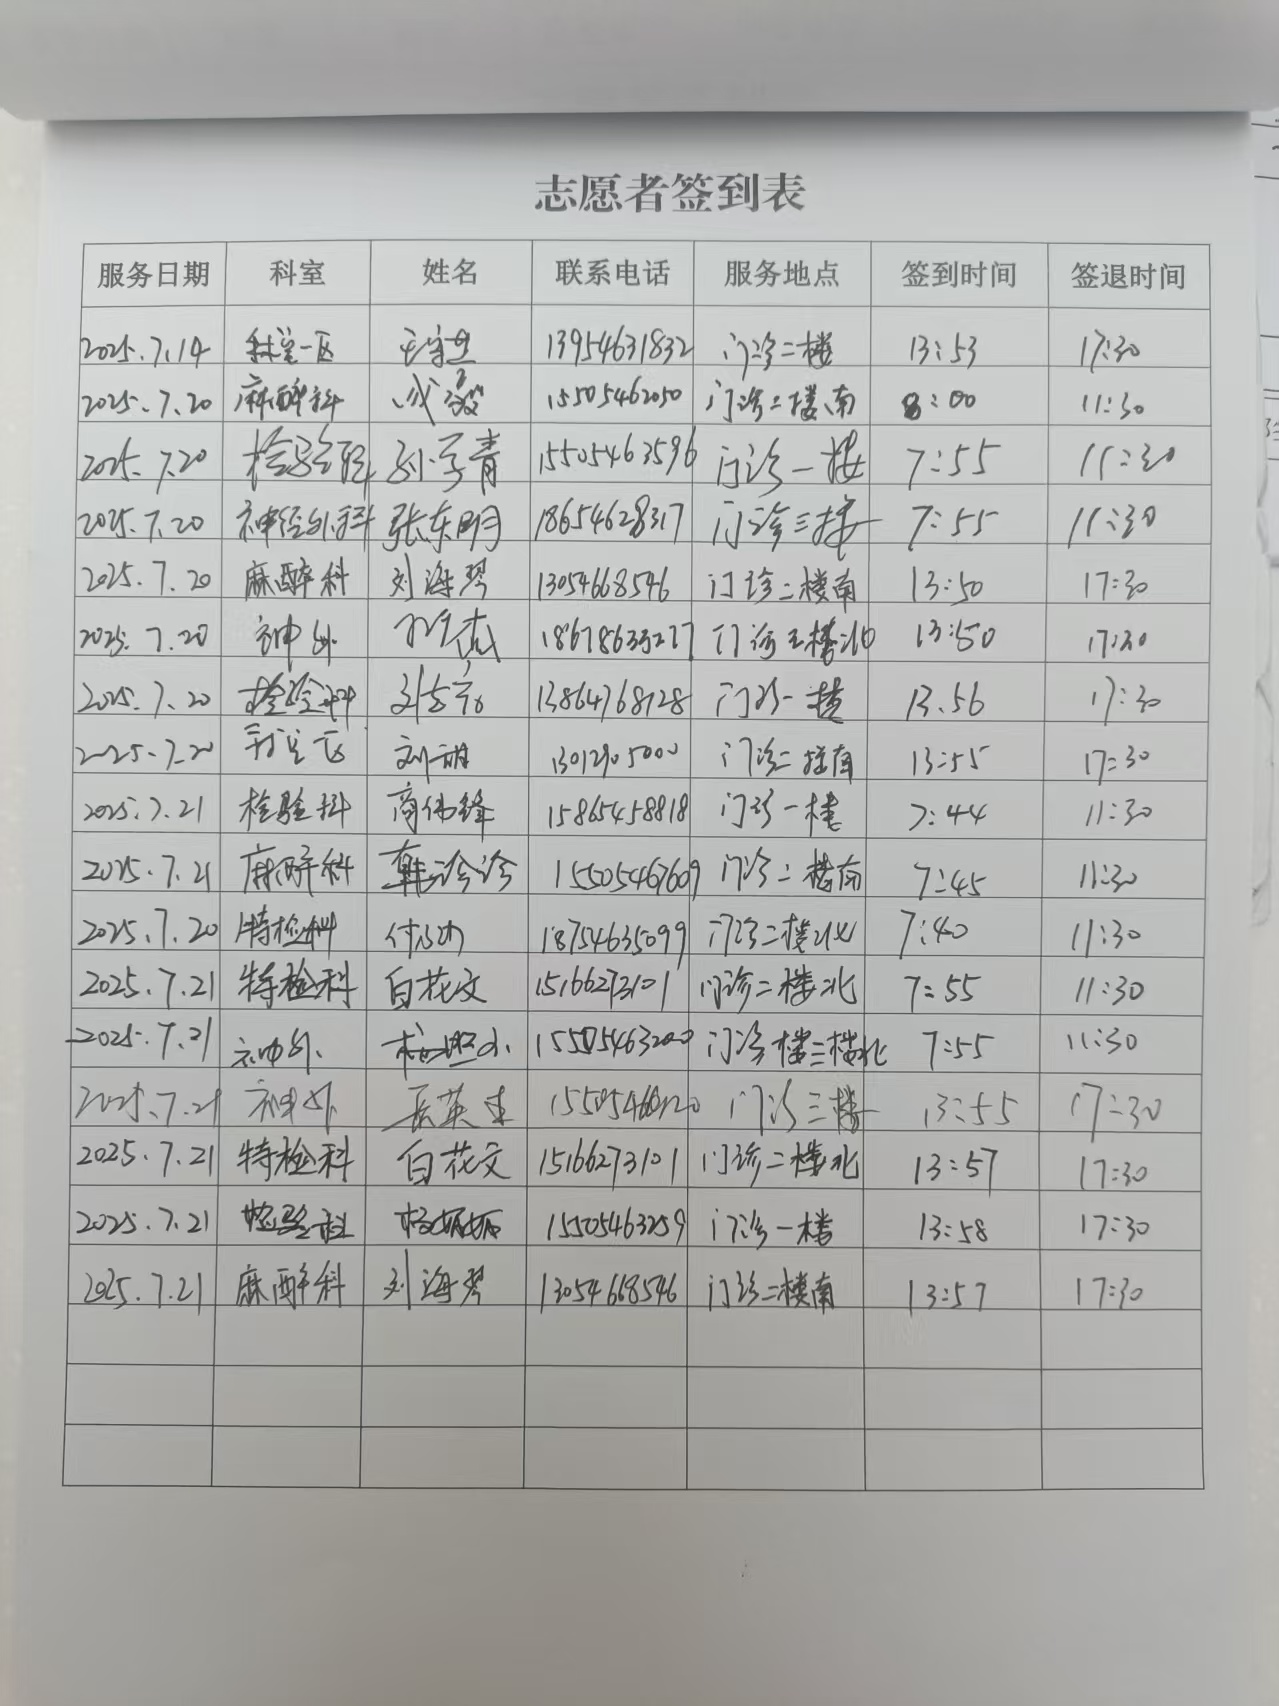 志愿者签到表
服务日期 科室 姓名 联系电话 服务地点 签到时间 签退时间
2025.7.14 一区 13954631832 门诊二楼 13:53 17:30
2025.7.20 麻醉科 15505462050 门诊二楼南 8:00 11:30
2025.7.20 检验科 孙学青 15505463596 门诊一楼 7:55 11:30
2025.7.20 神经外科 张东明 18654628317 门诊三楼 7:55 11:30
2025.7.20 麻醉科 刘海琴 13054668546 门诊二楼南 13:50 17:30
2025.7.20 神外 门诊三楼北 13:50 17:30
2025.7.20 检验科 13864768128 门诊一楼 13.56 17:30
2025.7.20 刘丽 13012905000 门诊二楼南 13:55 17:30
2025.7.21 检验科 商伟锋 15865458818 门诊一楼 7:44 11:30
2025.7.21 麻醉科 韩诊诊 15505467609 门诊二楼南 7:45 11:30
2025.7.20 特检科 18754635099 门诊二楼北 7:40 11:30
2025.7.21 特检科 白花文 15166273101 门诊二楼北 7:55 11:30
2025.7.21 神外 15505463200 门诊楼三楼北 7:55 11:30
2025.7.21 神外 门诊三楼 13:55 17:30
2025.7.21 特检科 白花文 15166273101 门诊二楼北 13:57 17:30
2025.7.21 检验科 15505463259 门诊一楼 13:58 17:30
2025.7.21 麻醉科 刘海琴 13054668546 门诊二楼南 13:57 17:30